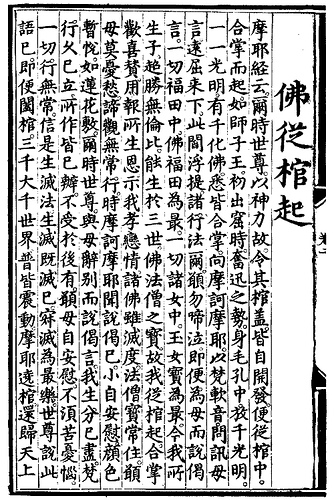 佛從棺起
摩耶經云。爾時世尊。以神力故。令其棺蓋。皆自開發。便從棺中。
合掌而起。如師子王。初出窟時。奮迅之勢。身毛孔中。放千光明。
一一光明。有千化佛。悉皆合掌。向摩訶摩耶。以梵軟音。問訊母
言。遠屈來下。此閻浮提。諸行法爾。願勿啼泣。即便為母。而說偈
言。一切福田中。佛福田為最。一切諸女中。玉女寶為最。今我所
生子。超勝無倫比。能生於三世。佛法僧之寶。故我從棺起。合掌
歡喜讚。用報所生恩。示我孝戀情。諸佛雖滅度。法僧寶常住。願
母莫憂愁。諦觀無常行。時摩訶摩耶。聞說偈已。小自安慰。顏色
暫悅。如蓮花敷。爾時世尊。與母辭別。而說偈言。我生分已盡。梵
行久已立。所作皆已辦。不受於後有。願母自安慰。不須苦憂惱。
一切行無常。信是生滅法。生滅既滅已。寂滅為最樂。世尊說此
語已。即便闔棺。三千大千世界。普皆震動。摩耶遶棺。還歸天上